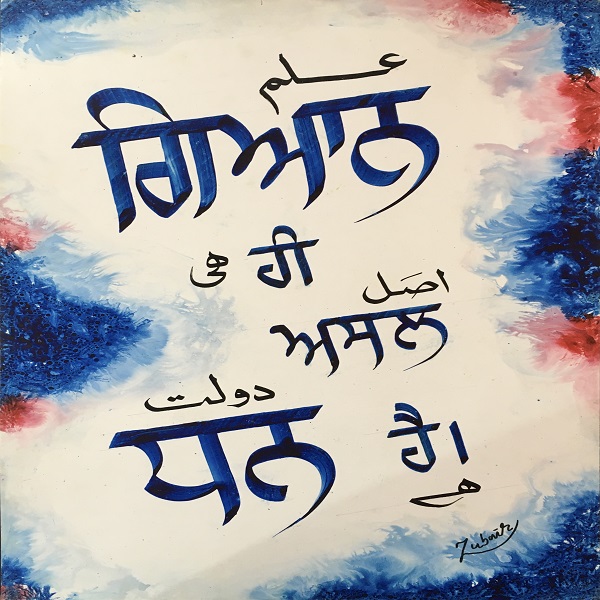 علم
ਗਿਆਨ
ਹੀ ھی
اصَل
ਅਸਲ
دولت
ਧਨ ਹੈ।
ھے
Zubair